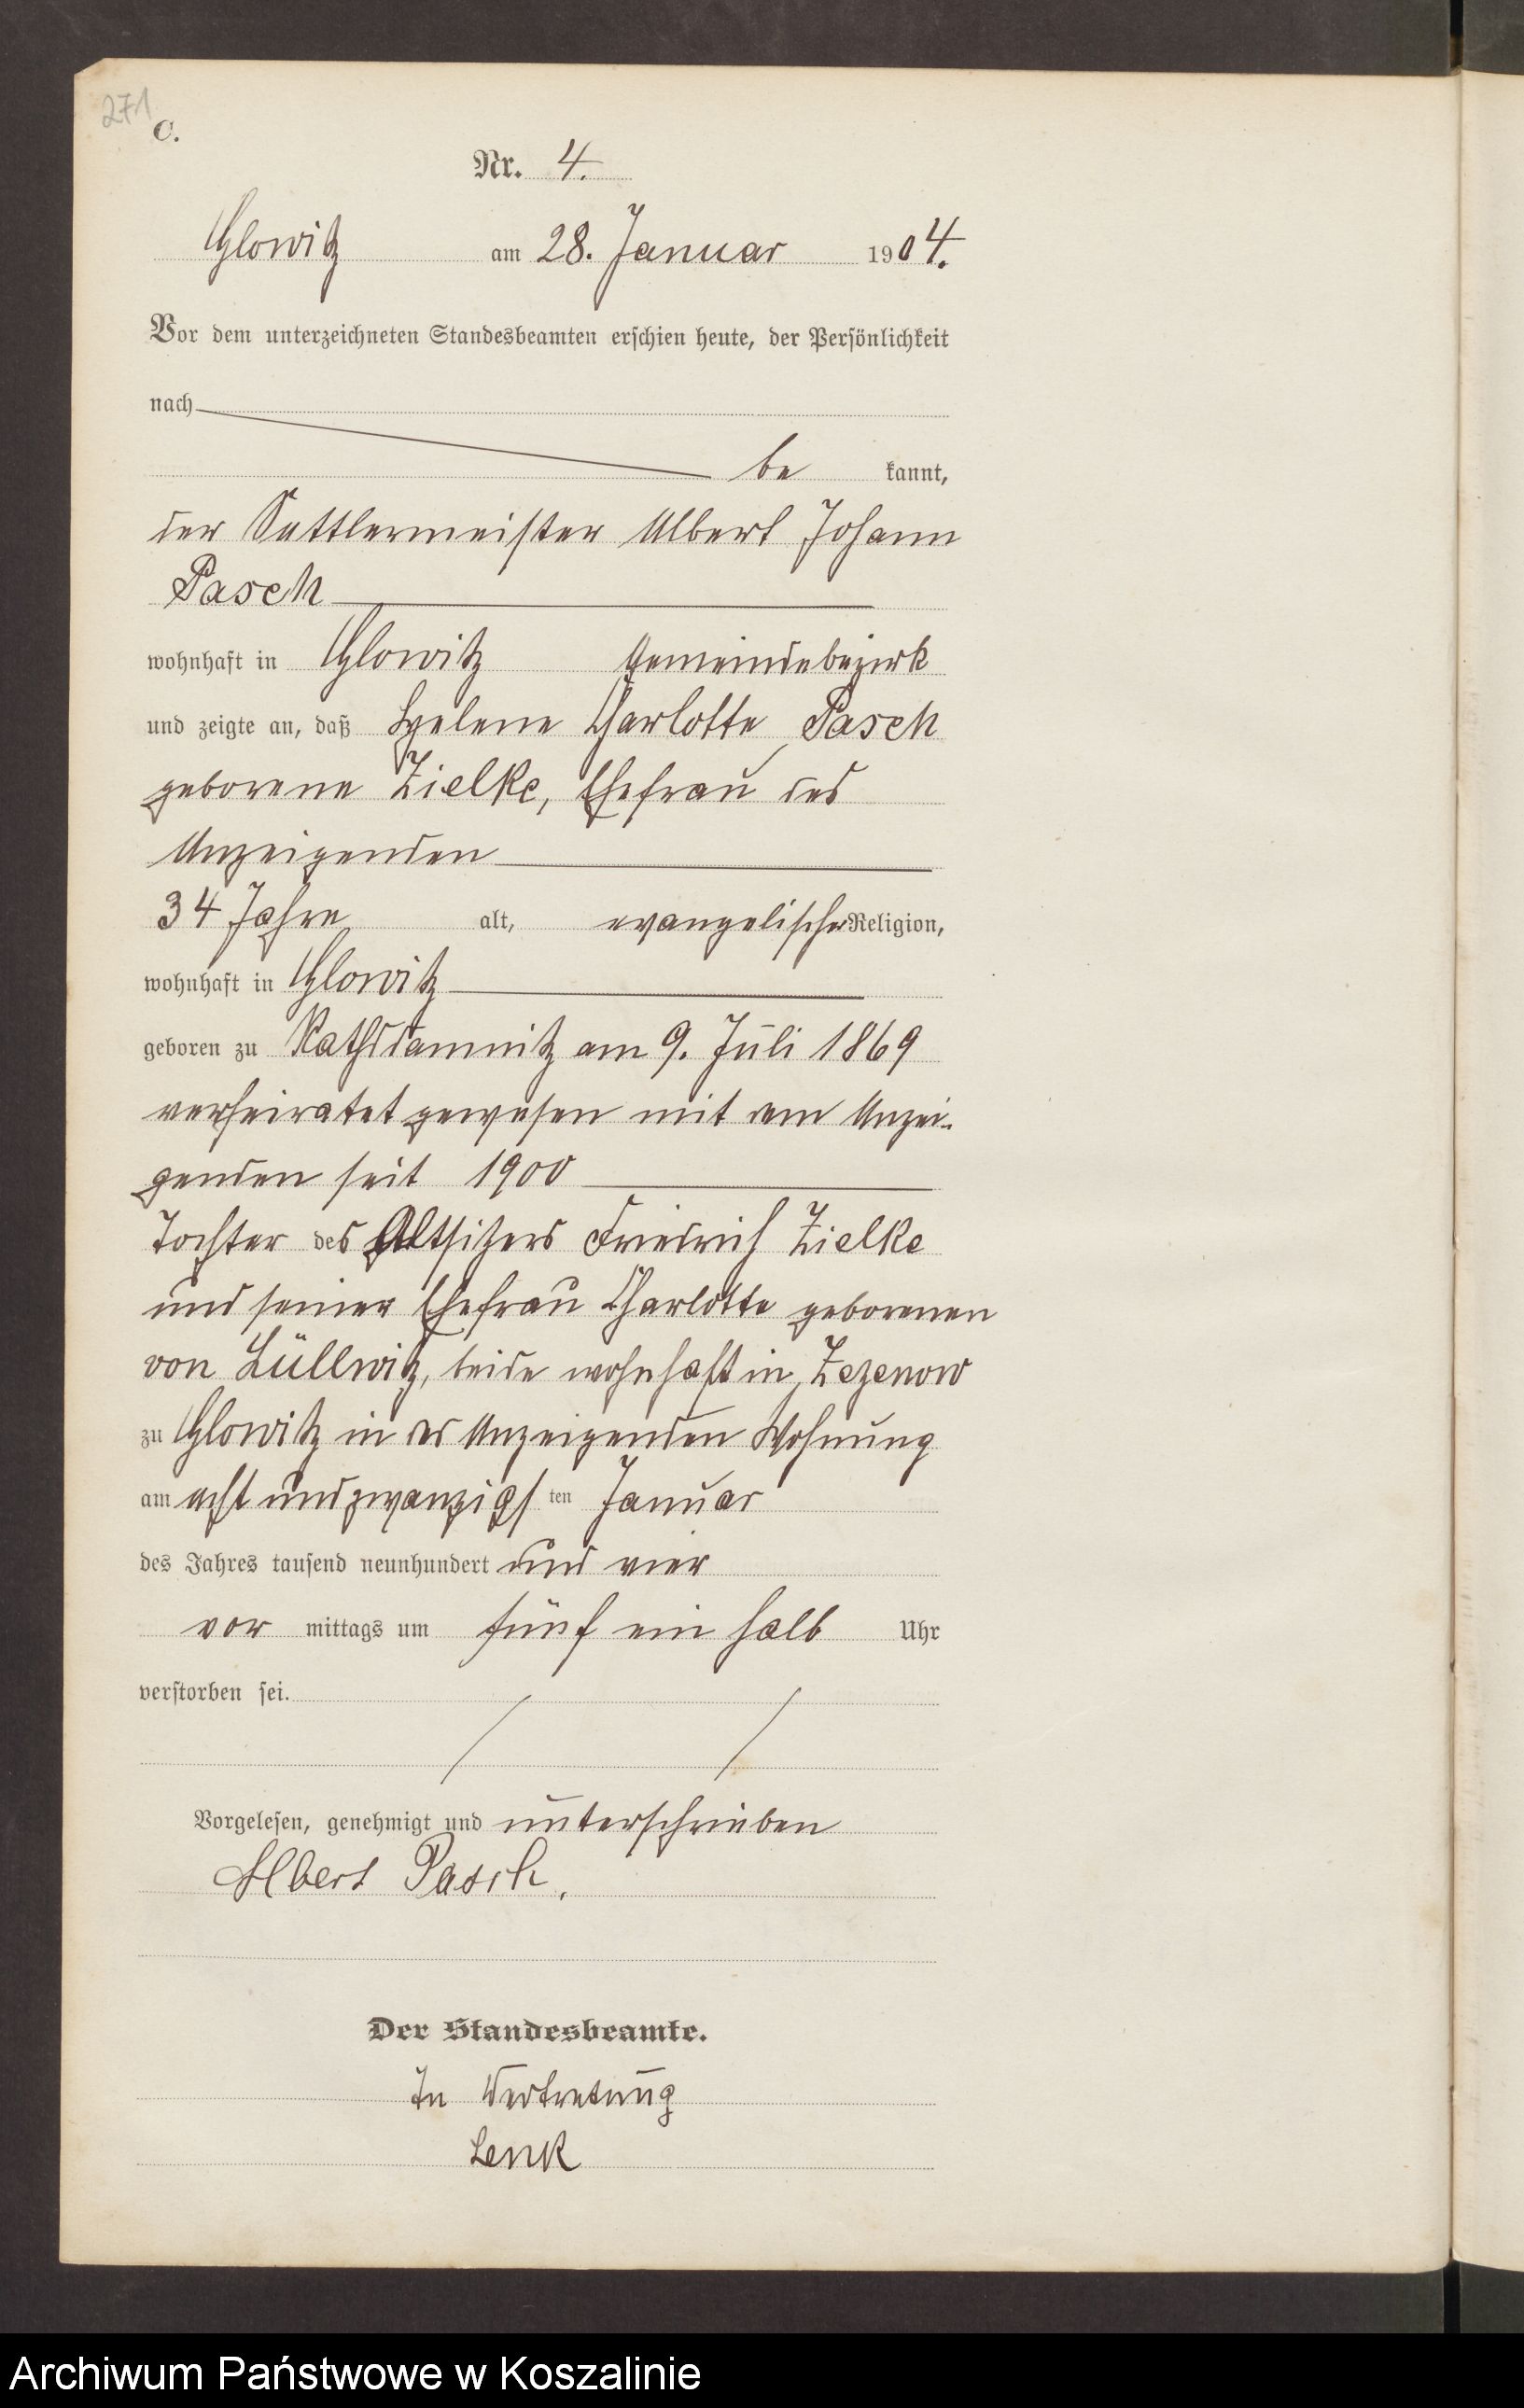 271
C.
Nr. 4.
Glowitz am 28. Januar 1904.
Vor dem unterzeichneten Standesbeamten erschien heute, der Persönlichkeit
nach
be kannt,
der Sattlermeister Albert Johann
Pasch
wohnhaft in Glowitz Gemeindebezirk
und zeigte an, daß Helene Charlotte Pasch
geborene Zielke, Ehefrau des
Anzeigenden
34 Jahre alt, evangelischer Religion,
wohnhaft in Glowitz
geboren zu Rathsdamnitz am 9. Juli 1869
verheiratet gewesen mit dem Anzei-
genden seit 1900
Tochter des Altsitzers Friedrich Zielke
und seiner Ehefrau Charlotte geborenen
von Lüllwitz, beide wohnhaft in Zezenow
zu Glowitz in des Anzeigenden Wohnung
am acht und zwanzigsten Januar
des Jahres tausend neunhundert und vier
vor mittags um fünf ein halb Uhr
verstorben sei.
Vorgelesen, genehmigt und unterschrieben
Albert Pasch.
Der Standesbeamte.
In Vertretung
Lenk
Archiwum Państwowe w Koszalinie